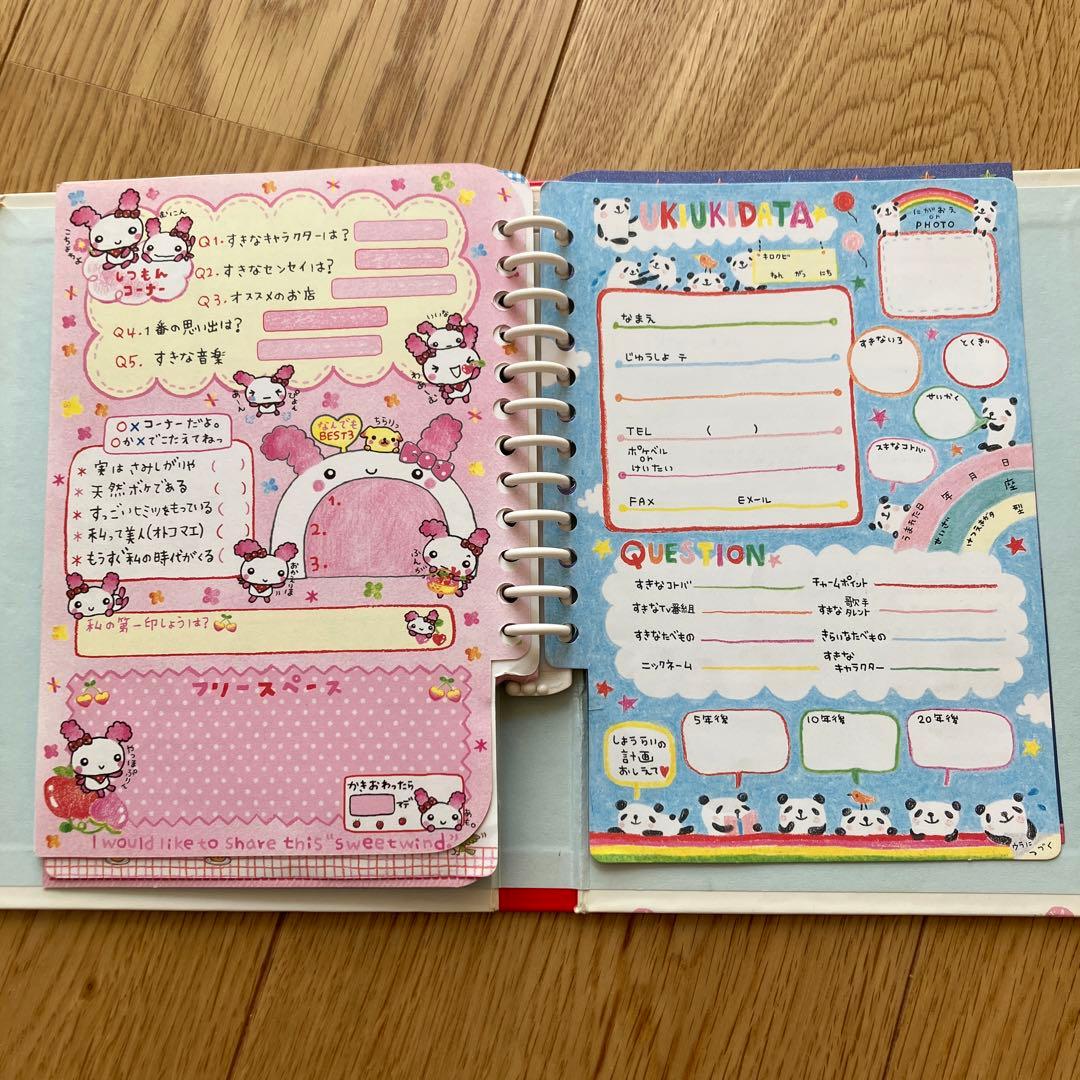 こちょわよ
むにん
しつもん
コーナー
Q1.すきなキャラクターは?
Q2.すきなセンセイは?
Q3.オススメのお店
Q4.1番の思い出は?
Q5.すきな音楽
いいな
わぁーむ
あーん
ぴょん
○×コーナーだよ。
○か×でこたえてねっ
*実はさみしがりや( )
*天然ボケである( )
*すっごいヒミツをもっている( )
*私って美人(オトコマエ)( )
*もうすぐ私の時代がくる( )
なんでも
BEST3
ちらりっ
1.
2.
3.
おかえりま
ふんが
私の第一印しょうは?
フリースペース
やっほぷりて
かきおわったら
まで
あも。
I would like to share this "sweet wind."
UKIUKIDATA
キロクビ
ねん がつ にち
にがおえ
or
PHOTO
なまえ
じゅうしょ 〒
TEL ( )
ポケベル
or
けいたい
FAX Eメール
すきないろ
とくぎ
せいかく
スキなコトバ
うまれた日 年 月 日
せいざ 座
けつえきがタ 型
QUESTION
すきなコトバ チャームポイント
すきなTV番組 すきな歌手タレント
すきなたべもの きらいなたべもの
ニックネーム すきなキャラクター
しょうらいの
計画
おしえて♥
5年後
10年後
20年後
ウラに
つづく